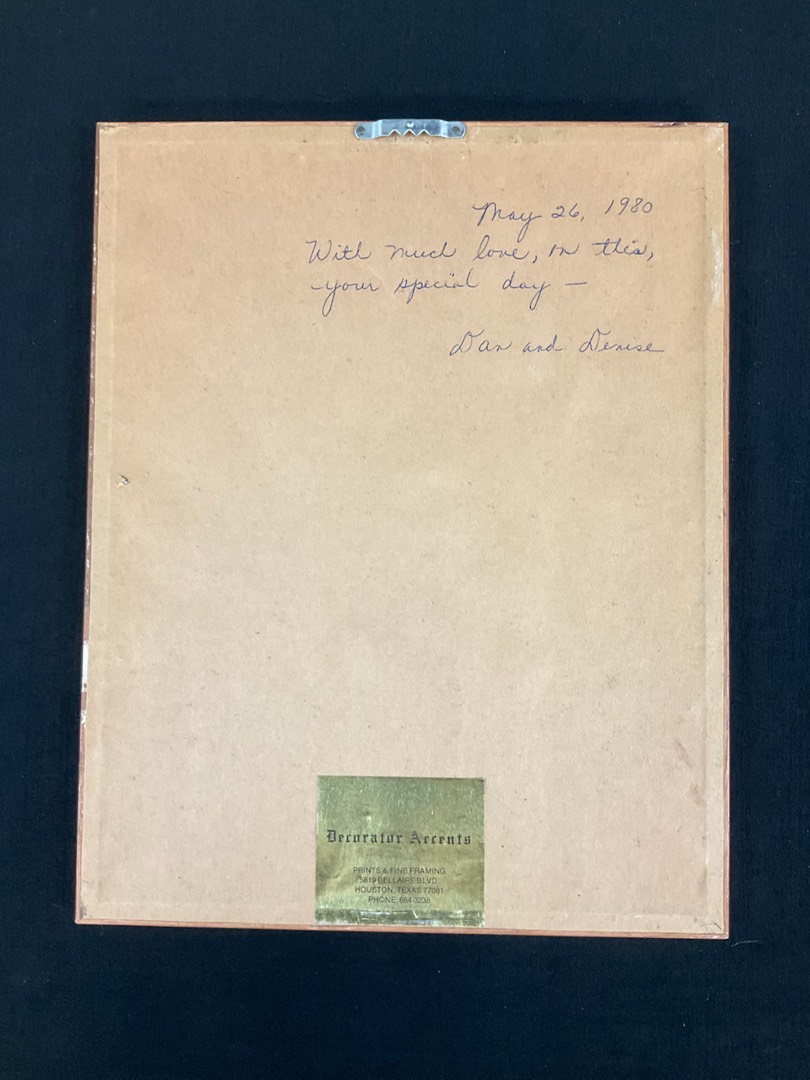 May 26, 1980
With much love, on this,
your special day —
Dan and Denise
Decorator Accents
PRINTS & FINE FRAMING
5819 BELLAIRE BLVD.
HOUSTON, TEXAS 77081
PHONE 664-3238